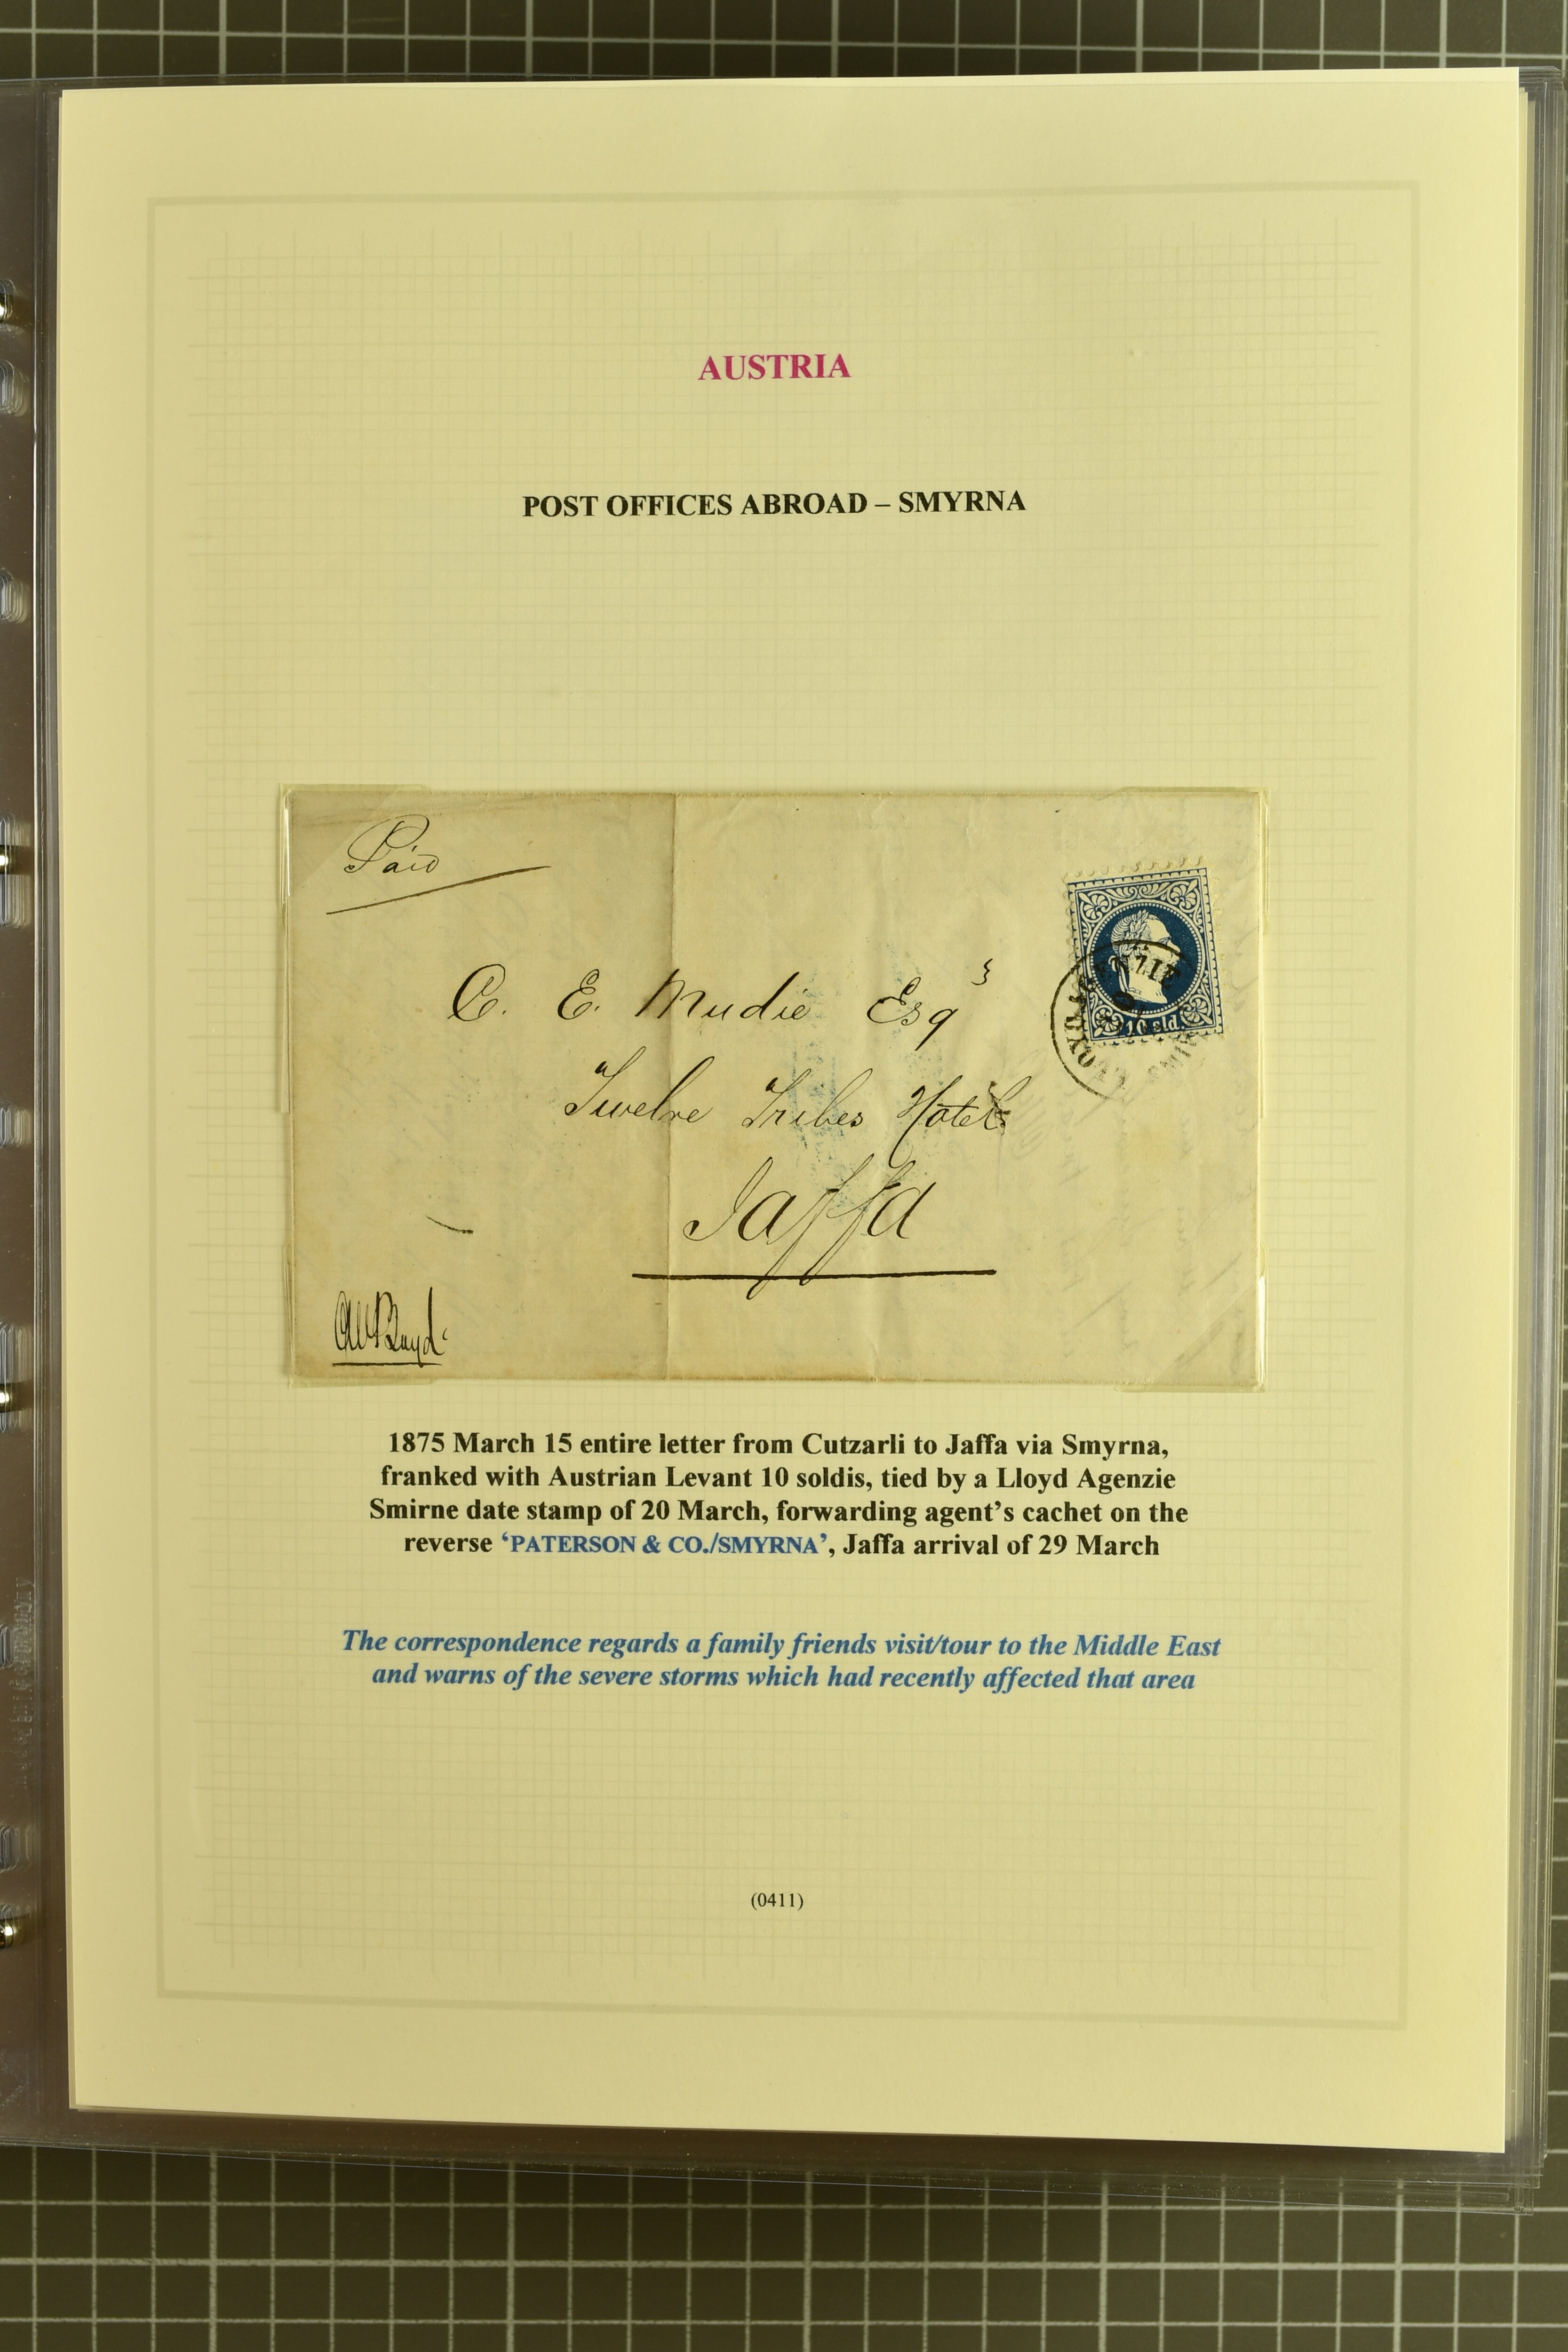 AUSTRIA
POST OFFICES ABROAD – SMYRNA
Paid
C. E. Mudie Esqr
10 sld.
LLOYD AGENZIE
Twelve Tribes Hotel
Jaffa
1875 March 15 entire letter from Cutzarli to Jaffa via Smyrna,
franked with Austrian Levant 10 soldis, tied by a Lloyd Agenzie
Smirne date stamp of 20 March, forwarding agent’s cachet on the
reverse ‘PATERSON & CO./SMYRNA’, Jaffa arrival of 29 March
The correspondence regards a family friends visit/tour to the Middle East
and warns of the severe storms which had recently affected that area
(0411)